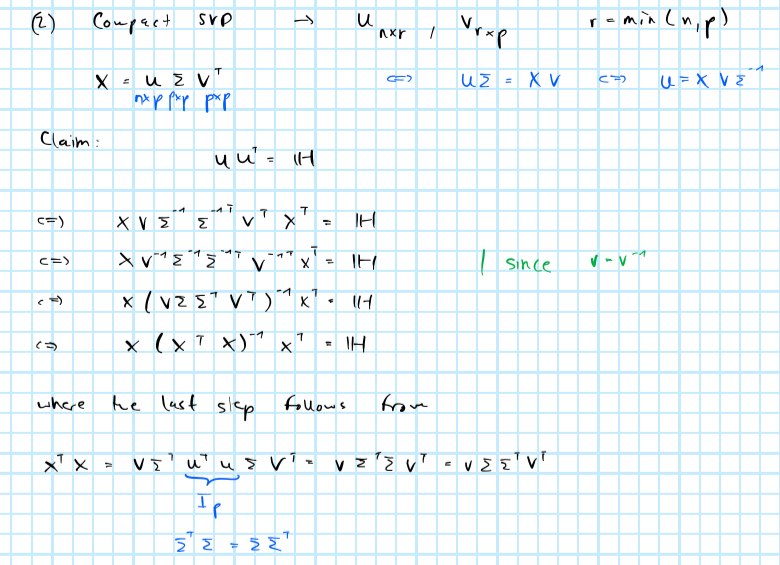 (2) Compact SVD → U_{n×r} , V_{r×p} r = min(n,p)
X = U Σ V^T <=> UΣ = XV <=> U = X V Σ^{-1}
n×p p×p p×p
Claim:
U U^T = ℍ
<=> X V Σ^{-1} Σ^{-1T} V^T X^T = ℍ
<=> X V^{-1} Σ^{-1} Σ^{-1T} V^{-1T} X^T = ℍ | since V = V^{-1}
<=> X (V Σ Σ^T V^T)^{-1} X^T = ℍ
<=> X (X^T X)^{-1} X^T = ℍ
where the last step follows from
X^T X = V Σ^T U^T U Σ V^T = V Σ^T Σ V^T = V Σ Σ^T V^T
I_p
Σ^T Σ = Σ Σ^T